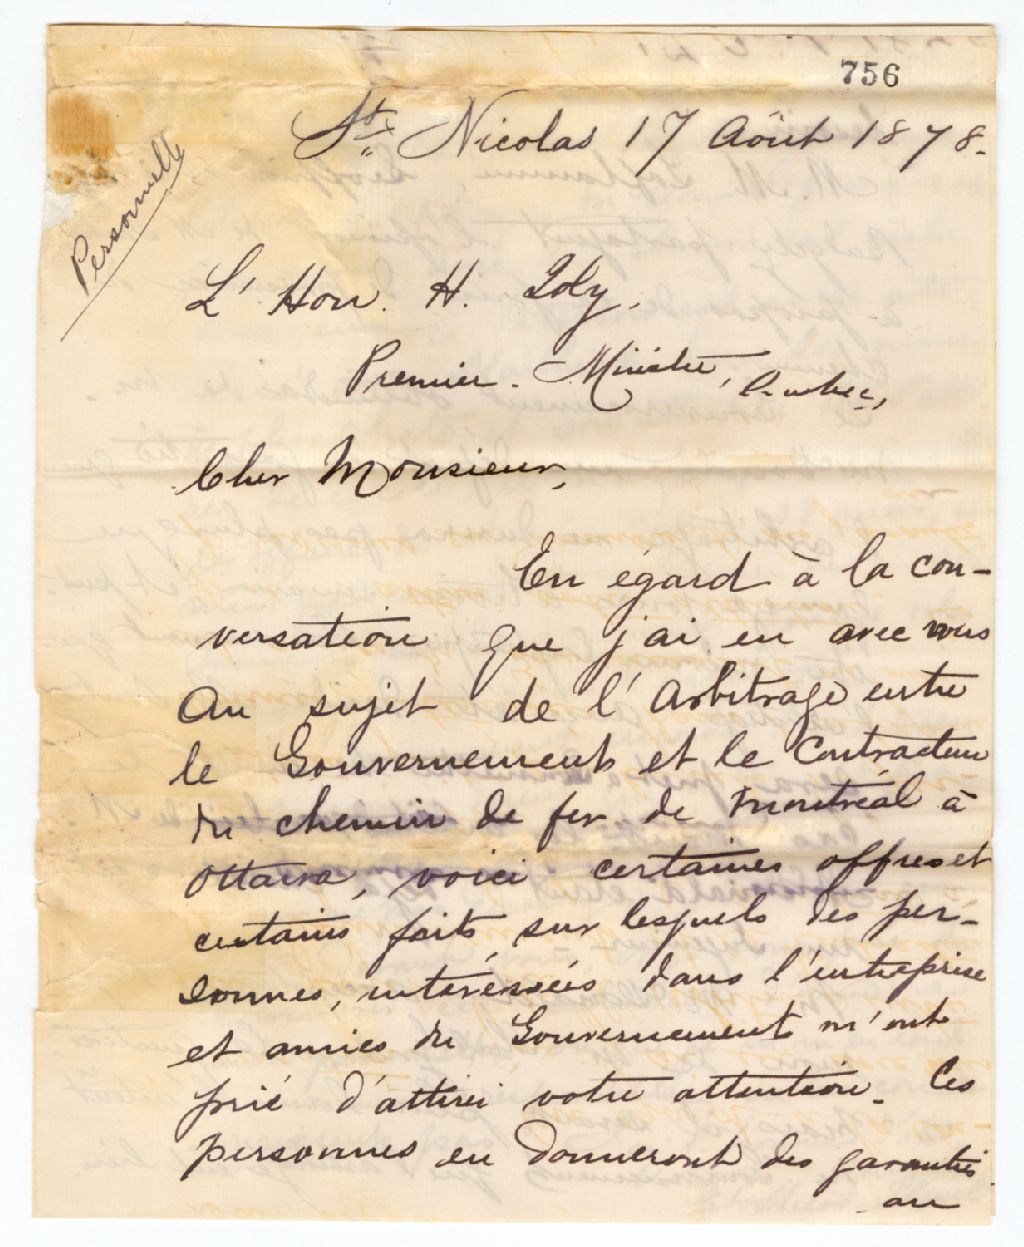 756
St. Nicolas 17 Août 1878.
Personnelle
L'Hon. H. Joly,
Premier Ministre, Québec,
Cher Monsieur,
En égard à la con-
versation que j'ai eu avec vous
au sujet de l'arbitrage entre
le Gouvernement et le Contracteur
du chemin de fer de Montréal à
Ottawa, voici certaines offres et
certains faits, sur lesquels des per-
sonnes, intéressées dans l'entreprise
et amies du Gouvernement m'ont
prié d'attirer votre attention. Ces
personnes en donneront des garanties
au